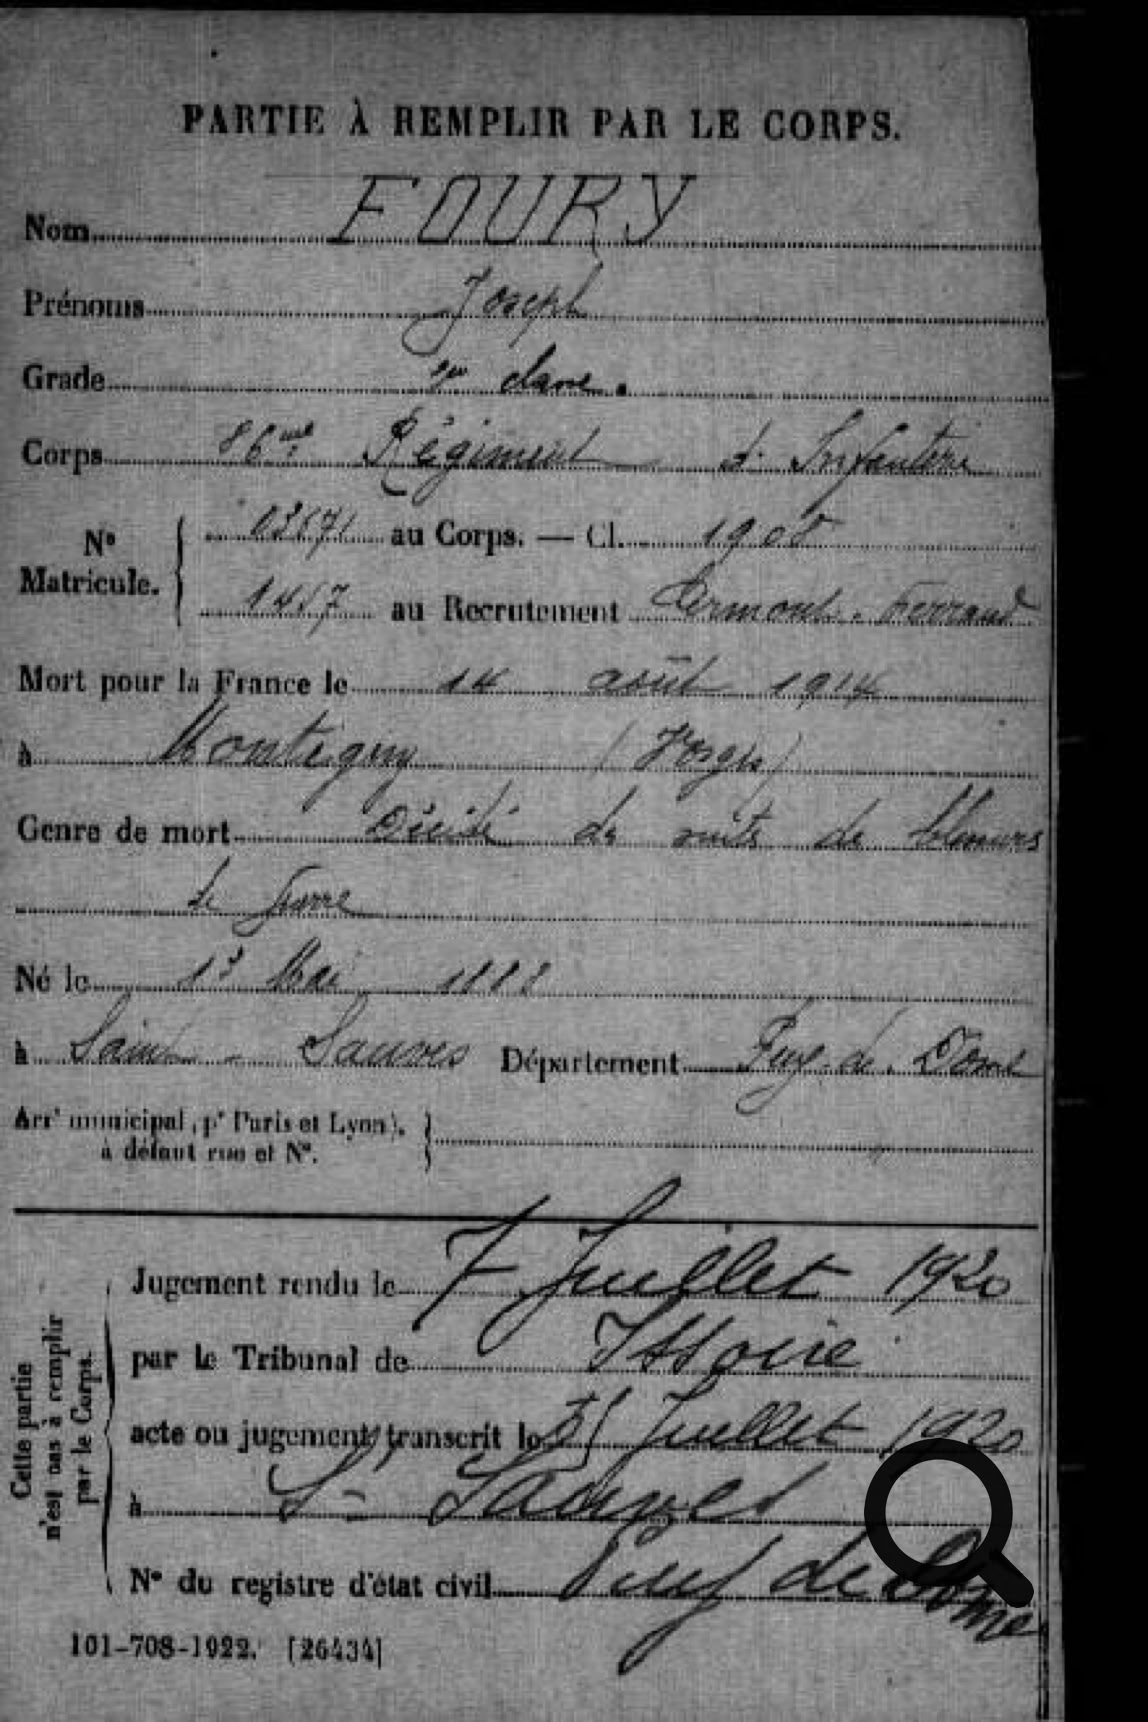 PARTIE À REMPLIR PAR LE CORPS.
Nom FOURY
Prénoms Joseph
Grade classe.
Corps 86me Régiment d' Infanterie
No Matricule. au Corps. — Cl. 1908
au Recrutement Clermont-Ferrand
Mort pour la France le 14 août 1914
à Montigny (Vosges)
Genre de mort Décédé de suites de blessures
de guerre
Né le Mai 1888
à Saint-Sauves Département Puy-de-Dome
Arrt municipal (pr Paris et Lyon), à défaut rue et No.
Cette partie n'est pas à remplir par le Corps.
Jugement rendu le 7 Juillet 1920
par le Tribunal de Issoire
acte ou jugement transcrit le 31 Juillet 1920
à St Sauves
No du registre d'état civil Puy de Dome
101-708-1922. [26434]